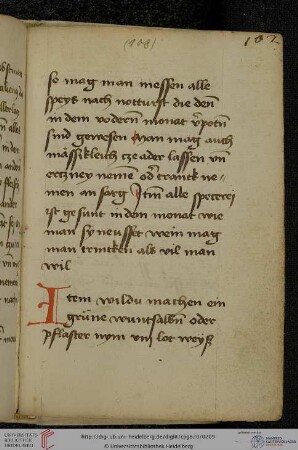 (108)
102
so mag man messen alle
speys nach notturft die den
in dem vodern monat vpotn
sind gewesen Man mag auch
mässikleich cze ader lassen vn
erczney nemen od tranck ne-
men an sorg Itm alle specerei
ist gesunt in dem monat wie
man sy neusset wein mag
man trincken als vil man
wil
Item wildu machen ein
grüne wuntsalbn oder
pflaster nym vm lot weyß
http://digi.ub.uni-heidelberg.de/diglit/cpg620/0209
© Universitätsbibliothek Heidelberg